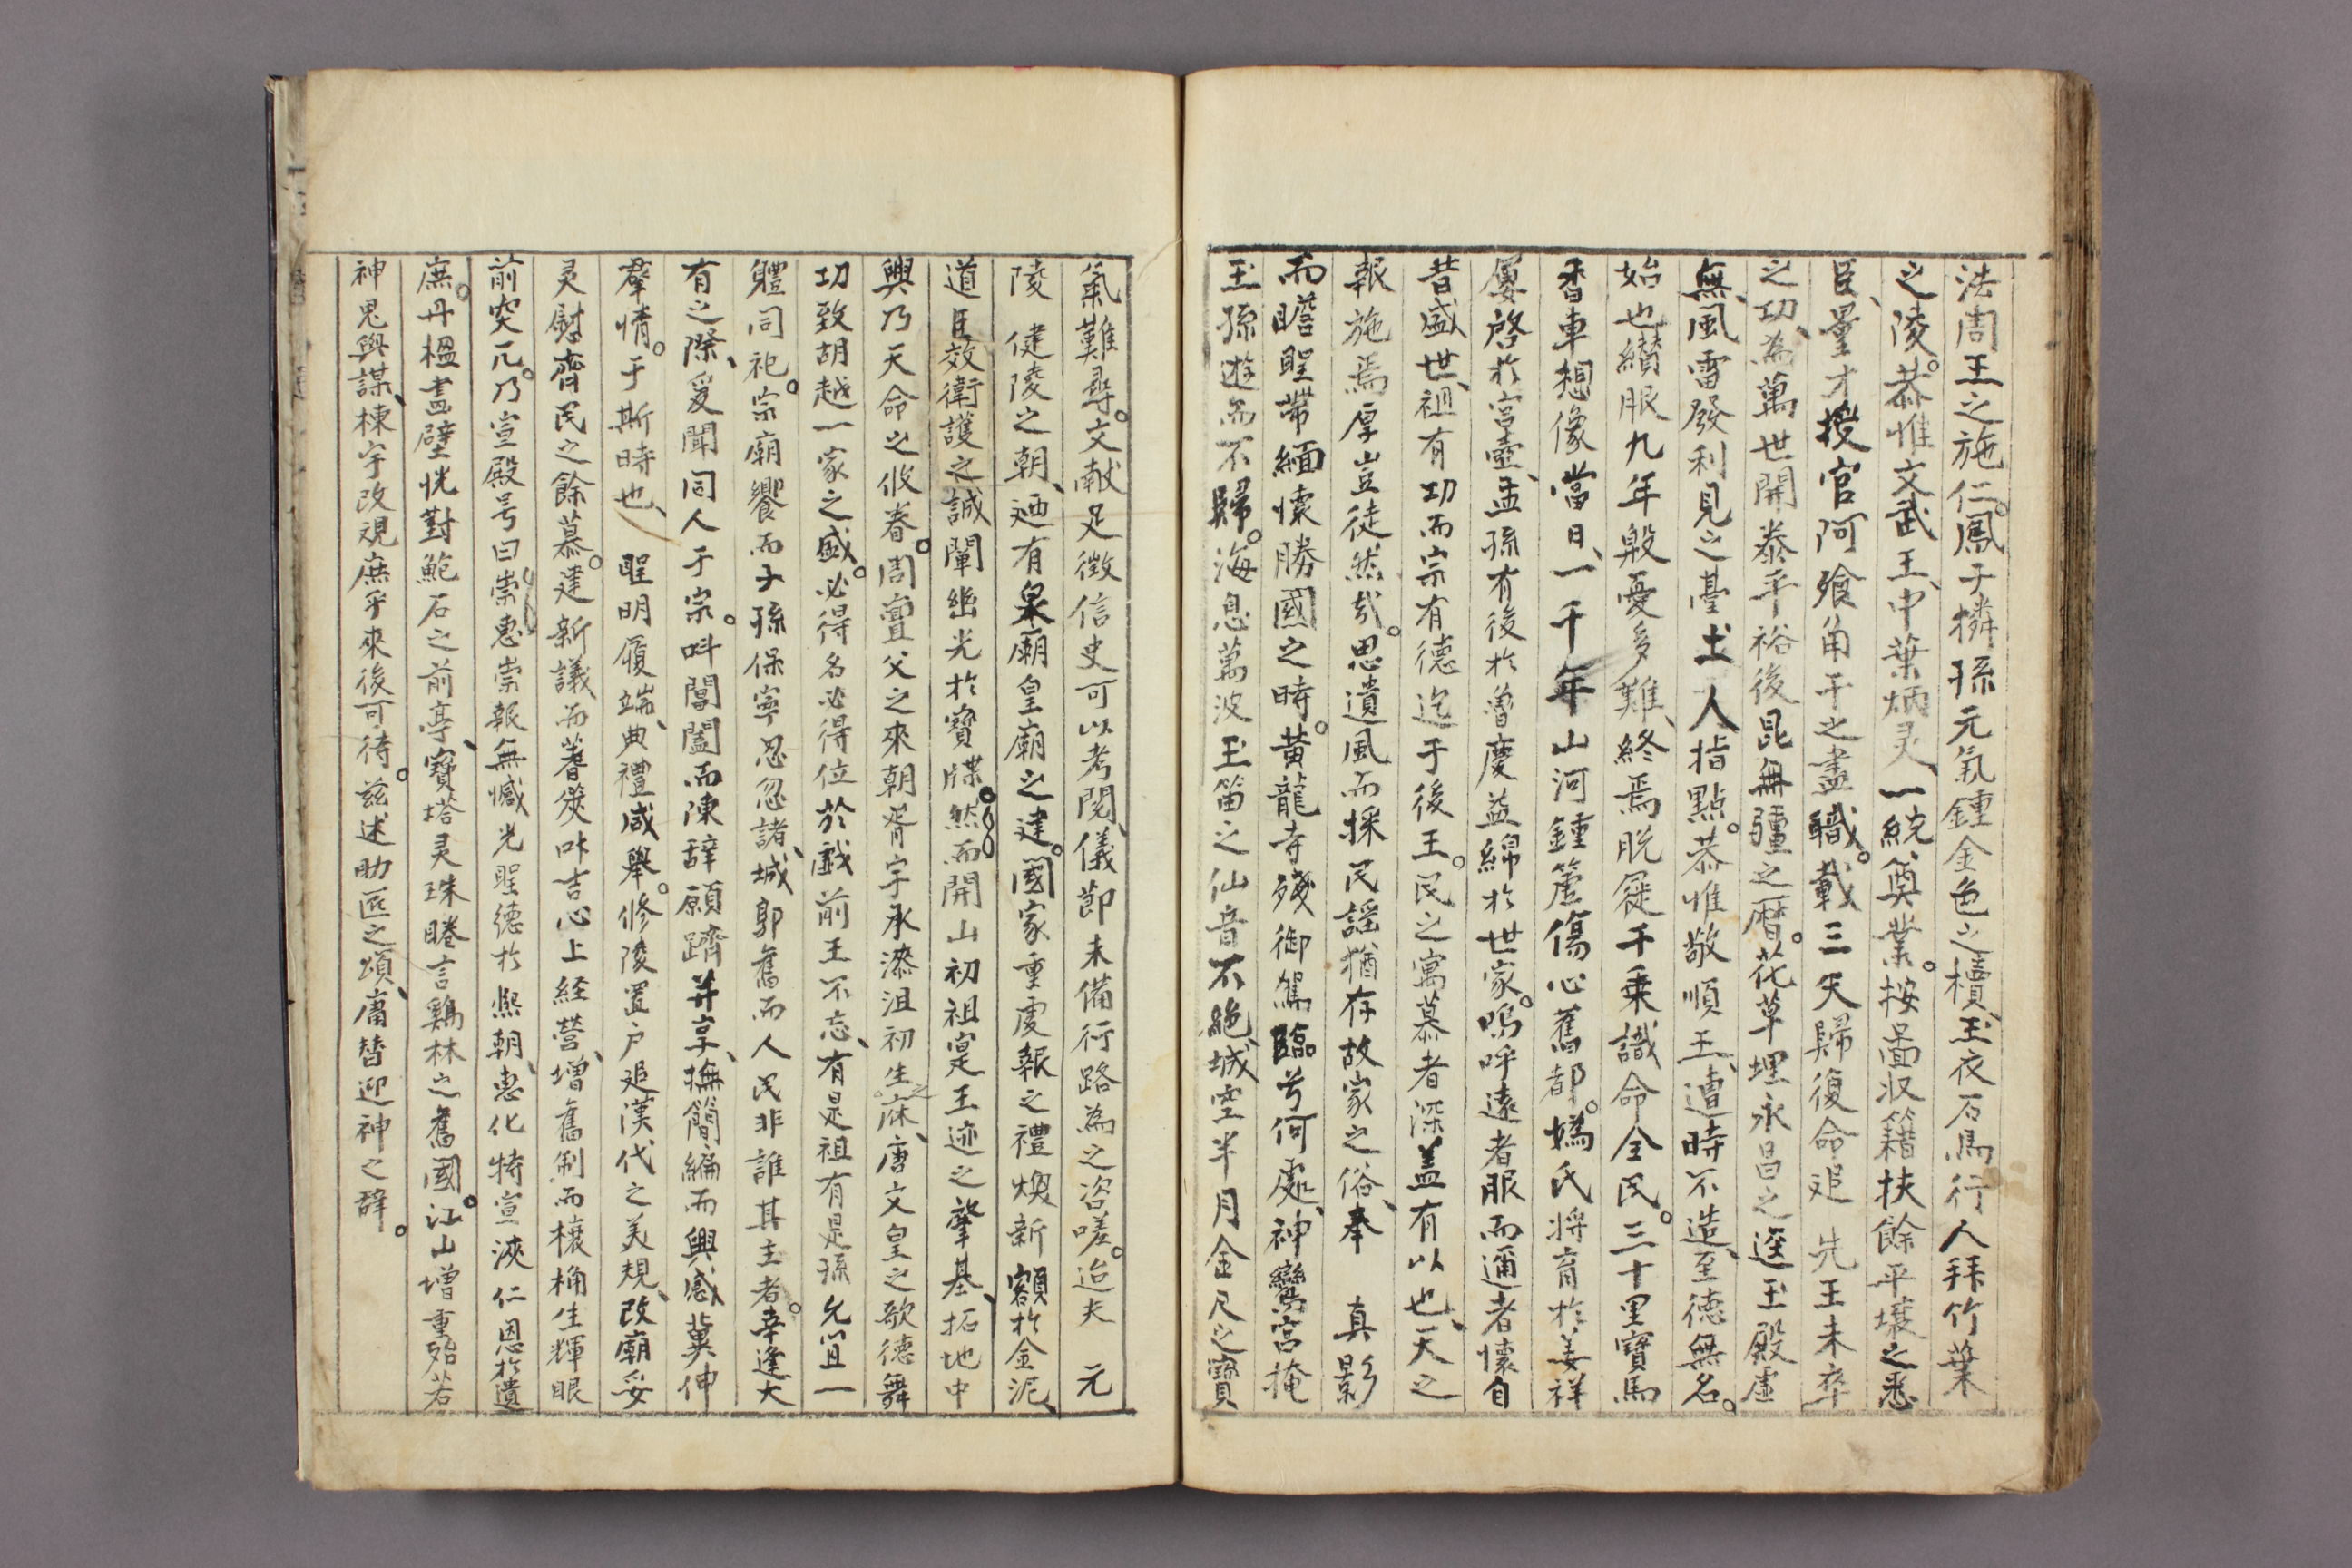 法周王之施仁。鳳子擠孫元氣鍾金色之櫝、玉衣石馬行人拜竹葉
之陵。恭惟文武王、中葉炳灵、一統奠業。按畵収籍扶餘平壤之悉
臣、量才授官阿飱角干之盡職。載三矢歸復命追 先王未卒
之功、為萬世開泰平裕後昆無疆之曆。花草埋永昌之逕玉殿虛
無、風雷發利見之臺土人指點。恭惟敬順王、遭時不造、至德無名。
始也纘服九年殷憂多難、終焉脫屣千乗識命全民。三十里寶馬
香車想像當日、一千年山河鍾簴傷心舊都。嬀氏將育於姜祥
屢啓於宮壼、孟孫有後於魯慶益綿於世家。嗚呼遠者服而邇者懷自
昔盛世、祖有功而宗有德迄于後王。民之寓慕者深盖有以也、天之
報施焉厚豈徒然㢤。思遺風而採民謠猶存故家之俗、奉 真影
而瞻聖帶緬懷勝國之時。黃龍寺殘御駕臨兮何處、神鸞宮掩
玉孫遊而不歸。海息萬波玉笛之仙音不絶、城空半月金尺之寶
氣難尋。文献足徵信史可以考閱、儀節未備行路為之咨嗟。迨夫 元
陵 健陵之朝、廼有泉廟皇廟之建。國家重虔報之禮煥新額於金泥、
道臣效衛護之誠闡幽光於寶牒。然而開山初祖寔王迹之肇基、拓地中
興乃天命之攸眷。周亶父之來朝胥宇永漆沮初生之庥、唐文皇之歌德舞
功致胡越一家之盛。必得名必得位於戯前王不忘、有是祖有是孫允宜一
軆同祀。宗廟饗而子孫保寧忍忽諸、城郭舊而人民非誰其主者。幸逢大
有之際、爰聞同人于宗。呌閶闔而陳辭願躋并享、撫簡編而興感冀伸
羣情。于斯時也、 聖明履端、典禮咸舉。修陵置户追漢代之美規、改廟妥
灵慰齊民之餘慕。建新議而蓍筴叶吉心上経營、增舊制而榱桷生輝眼
前突兀。乃宣殿号曰崇惠崇報無憾光聖德於熙朝、惠化特宣浹仁恩於遺
庶。丹楹畵壁恍對鮑石之前亭、寶塔灵珠睠言鷄林之舊國。江山增重殆若
神鬼與謀、棟宇改觀庶乎來後可待。兹述助匠之頌、庸替迎神之辭。